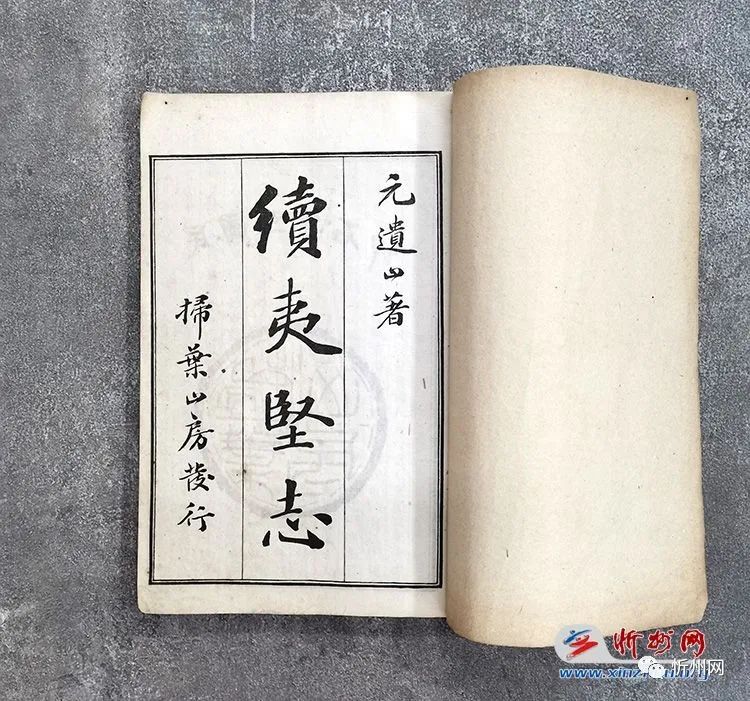 元遺山著
續夷堅志
掃葉山房發行
忻州网
忻州网